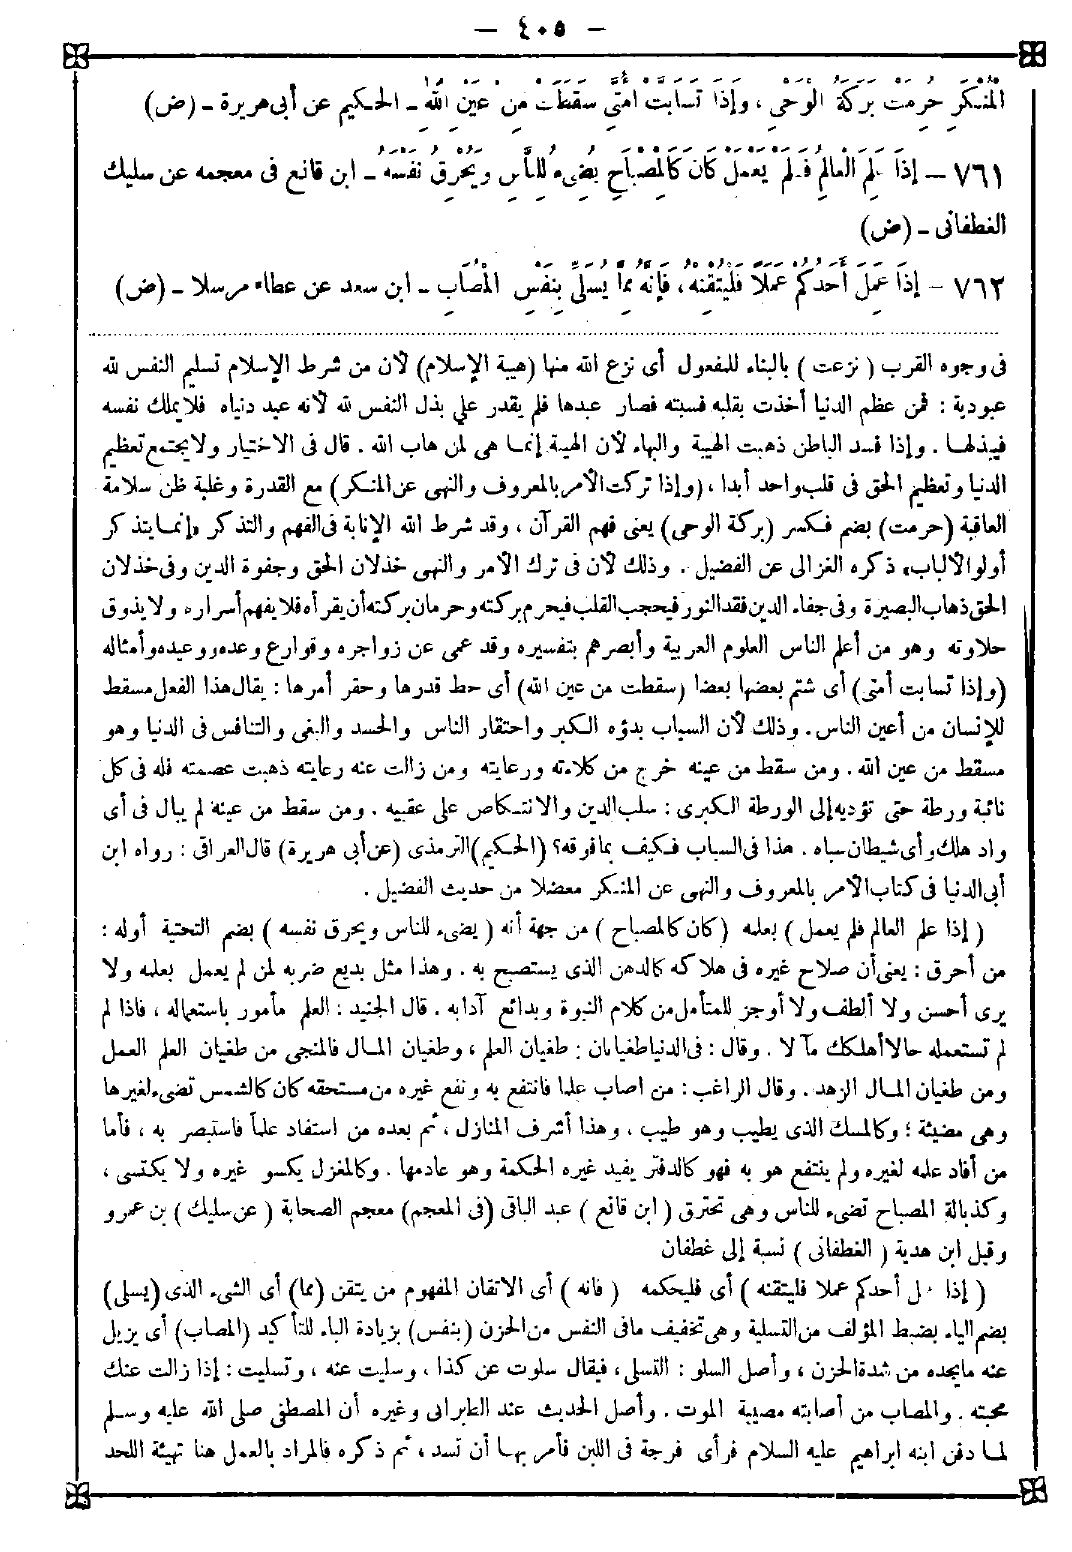 — ٤٠٥ —
الْمُنْكَرِ حُرِمَتْ بَرَكَةَ الْوَحْىِ ، وَإِذَا تَسَابَّتْ أُمَّتِى سَقَطَتْ مِنْ عَيْنِ اللّٰهِ ـ الحكيم عن أبى هريرة ـ (ض)
٧٦١ ـ إِذَا عَلِمَ الْعَالِمُ فَلَمْ يَعْمَلْ كَانَ كَالْمِصْبَاحِ يُضِىءُ لِلنَّاسِ وَيَحْرِقُ نَفْسَهُ ـ ابن قانع فى معجمه عن سليك
الغطفانى ـ (ض)
٧٦٢ ـ إِذَا عَمِلَ أَحَدُكُمْ عَمَلًا فَلْيُتْقِنْهُ ، فَإِنَّهُ مِمَّا يُسَلِّى بِنَفْسِ الْمُصَابِ ـ ابن سعد عن عطاء مرسلا ـ (ض)
فى وجوه القرب ( نزعت ) بالبناء للمفعول أى نزع الله منها (هيبة الإسلام) لأن من شرط الإسلام تسليم النفس لله
عبودية : فمن عظم الدنيا أخذت بقلبه فسبته فصار عبدها فلم يقدر على بذل النفس لله لأنه عبد دنياه فلا يملك نفسه
فيبذلها . وإذا فسد الباطن ذهبت الهيبة والبهاء لأن الهيبة إنما هى لمن هاب الله . قال فى الاختيار ولا يجتمع تعظيم
الدنيا وتعظيم الحق فى قلب واحد أبدا ، (وإذا تركت الأمر بالمعروف والنهى عن المنكر) مع القدرة وغلبة ظن سلامة
العاقبة (حرمت) بضم فكسر (بركة الوحى) يعنى فهم القرآن ، وقد شرط الله الإنابة فى الفهم والتذكر «إنما يتذكر
أولو الألباب» ذكره الغزالى عن الفضيل . وذلك لأن فى ترك الأمر والنهى خذلان الحق وجفوة الدين وفى خذلان
الحق ذهاب البصيرة وفى جفاء الدين فقد النور فيحجب القلب فيحرم بركته وحرمان بركته أن يقرأه فلا يفهم أسراره ولا يذوق
حلاوته وهو من أعلم الناس العلوم العربية وأبصرهم بتفسيره وقد عمى عن زواجره وقوارع وعده ووعيده وأمثاله
(وإذا تسابت أمتى) أى شتم بعضها بعضا (سقطت من عين الله) أى حط قدرها وحقر أمرها : يقال هذا الفعل مسقط
للإنسان من أعين الناس . وذلك لأن السباب بدؤه الكبر واحتقار الناس والحسد والبغى والتنافس فى الدنيا وهو
مسقط من عين الله . ومن سقط من عينه خرج من كلاءته ورعايته ومن زالت عنه رعايته ذهبت عصمته فله فى كل
نائبة ورطة حتى تؤديه إلى الورطة الكبرى : سلب الدين والانتكاص على عقبيه . ومن سقط من عينه لم يبال فى أى
واد هلك وأى شيطان سباه . هذا فى السباب فكيف بما فوقه؟ (الحكيم) الترمذى (عن أبى هريرة) قال العراقى : رواه ابن
أبى الدنيا فى كتاب الأمر بالمعروف والنهى عن المنكر معضلا من حديث الفضيل .
( إذا علم العالم فلم يعمل ) بعلمه ( كان كالمصباح ) من جهة أنه ( يضىء للناس ويحرق نفسه ) بضم التحتية أوله :
من أحرق : يعنى أن صلاح غيره فى هلاكه كالدهن الذى يستصبح به . وهذا مثل بديع ضربه لمن لم يعمل بعلمه ولا
يرى أحسن ولا ألطف ولا أوجز للمتأمل من كلام النبوة وبدائع آدابه . قال الجنيد : العلم مأمور باستعماله ، فاذا لم
لم تستعمله حالا أهلكك مآلا . وقال : فى الدنيا طغيانان : طغيان العلم ، وطغيان المال فالمنجى من طغيان العلم العمل
ومن طغيان المال الزهد . وقال الراغب : من اصاب علما فانتفع به ونفع غيره من مستحقه كان كالشمس تضىء لغيرها
وهى مضيئة ؛ وكالمسك الذى يطيب وهو طيب ، وهذا أشرف المنازل ، ثم بعده من استفاد علماً فاستبصر به ، فأما
من أفاد علمه لغيره ولم ينتفع هو به فهو كالدفتر يفيد غيره الحكمة وهو عادمها . وكالمغزل يكسو غيره ولا يكتسى ،
وكذبالة المصباح تضىء للناس وهى تحترق ( ابن قانع ) عبد الباقى (فى المعجم) معجم الصحابة ( عن سليك ) بن عمرو
وقيل ابن هدية ( الغطفانى ) نسبة إلى غطفان
( إذا عمل أحدكم عملا فليتقنه ) أى فليحكمه ( فانه ) أى الاتقان المفهوم من يتقن (مما) أى الشىء الذى (يسلى)
بضم الياء بضبط المؤلف من التسلية وهى تخفيف مافى النفس من الحزن (بنفس) بزيادة الباء للتأكيد (المصاب) أى يزيل
عنه مايجده من شدة الحزن ، وأصل السلو : التسلى ، فيقال سلوت عن كذا ، وسليت عنه ، وتسليت : إذا زالت عنك
محبته . والمصاب من أصابته مصيبة الموت . وأصل الحديث عند الطبرانى وغيره أن المصطفى صلى الله عليه وسلم
لما دفن ابنه ابراهيم عليه السلام فرأى فرجة فى اللبن فأمر بها أن تسد ، ثم ذكره فالمراد بالعمل هنا تهيئة اللحد